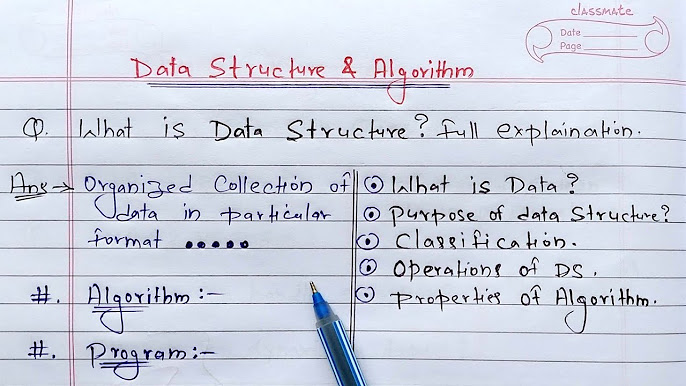 classmate
Date
Page
Data Structure & Algorithm
Q. What is Data Structure? full explaination.
Ans → Organized Collection of
data in particular
format .....
#. Algorithm:-
#. Program:-
What is Data?
Purpose of data Structure?
Classification.
Operations of DS.
Properties of Algorithm.